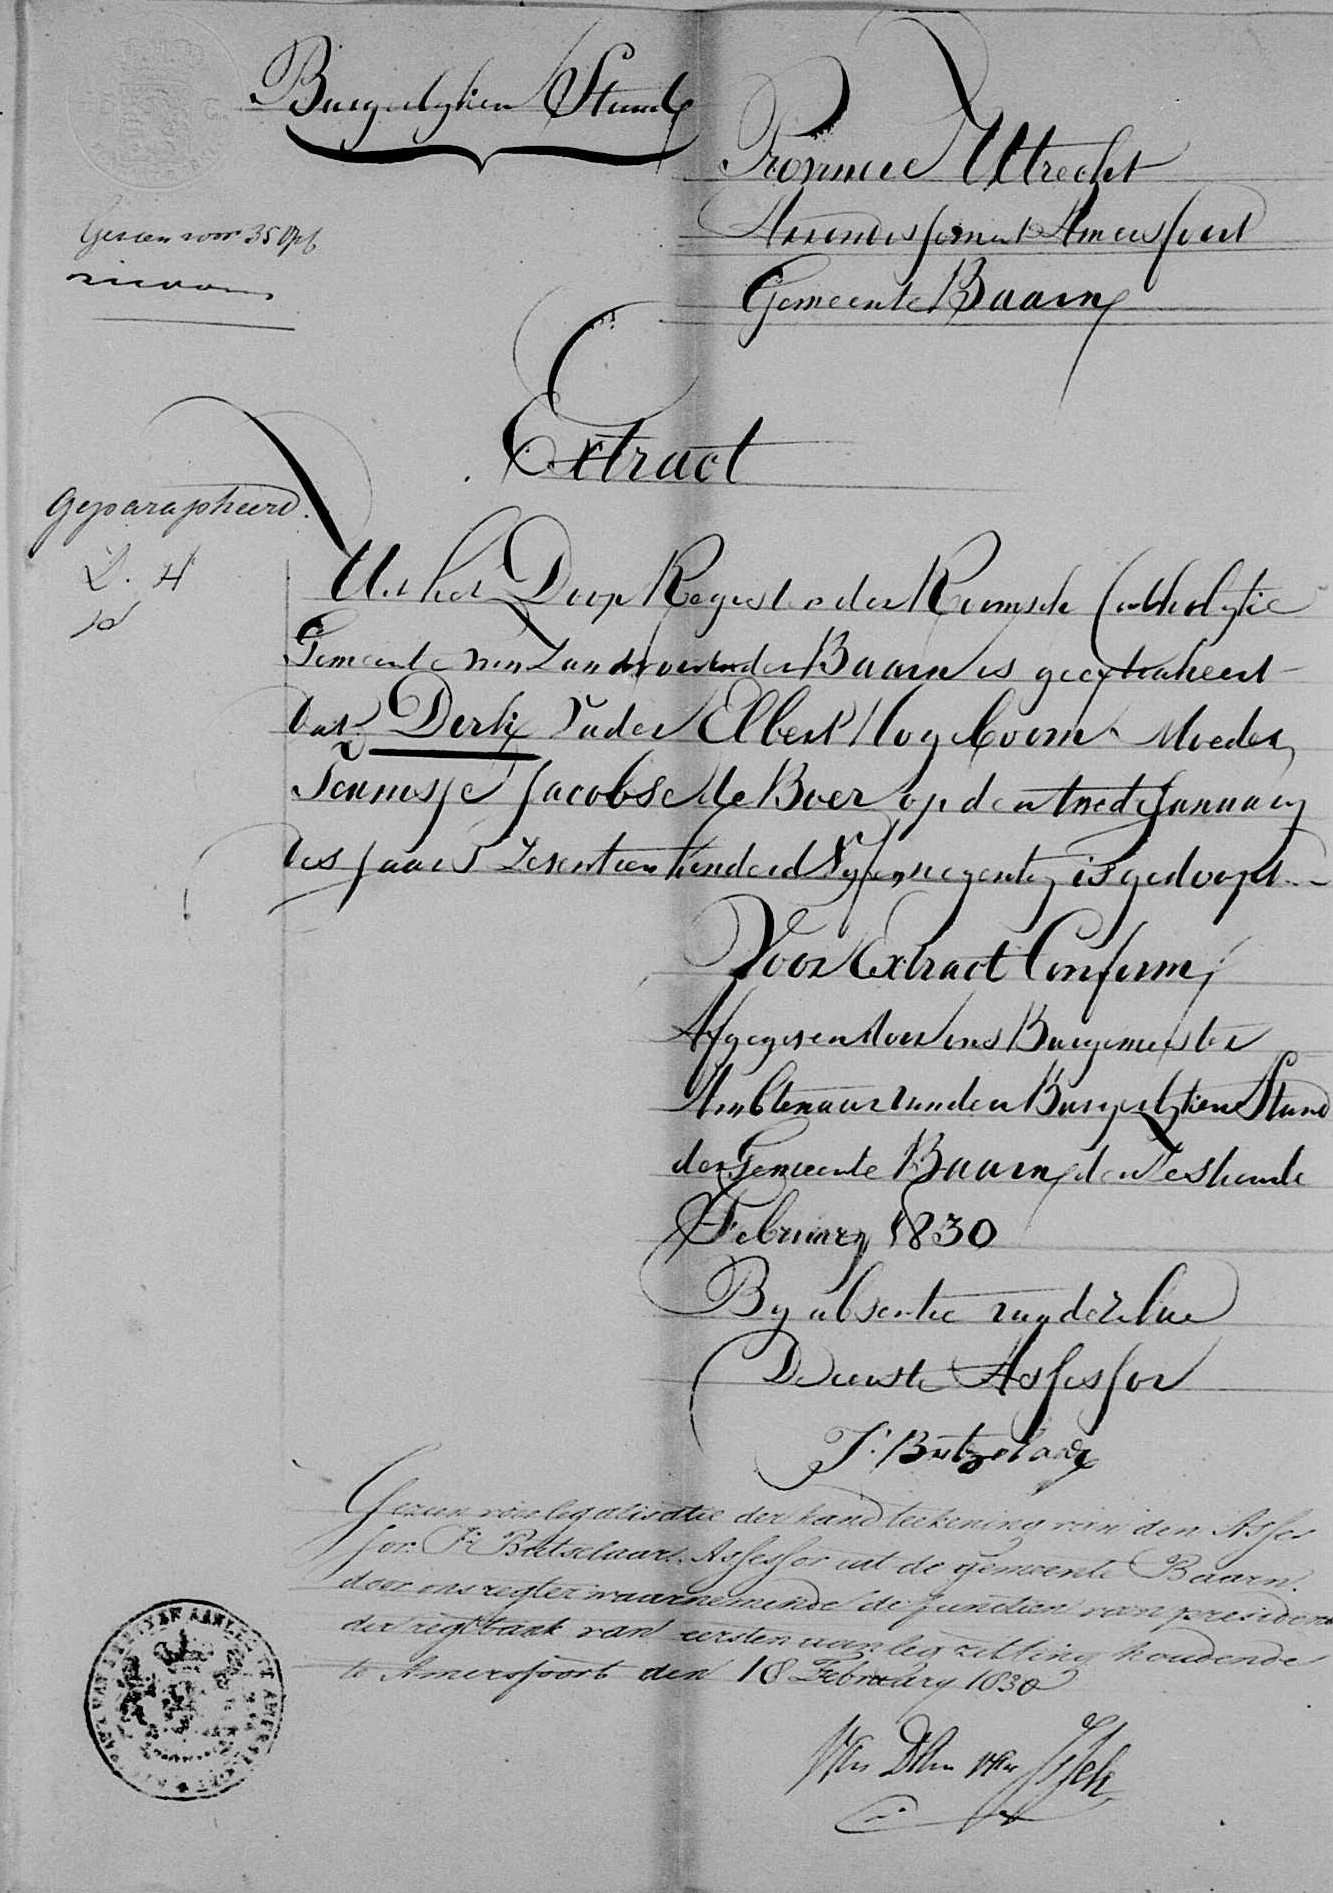 Burgelyken Stand
Provincie Utrecht
Arrondissement Amersfoort
Gemeente Baarn
Gezien voor 35 Opc
Extract
Geparapheerd.
D. H
Uit het Doop Register der Roomsche Catholyke
Gemeente van Zandvoort onder Baarn is geextraheert
dat Derk Vader Elbert Hogeboom Moeder
Teunisje Jacobse de Boer op den tweede January
des Jaars Zeventien hondert Vyf en negentig is gedoopt
Voor Extract Conform,
Afgegeven door ons Burgemeester
Ambtenaar van den Burgerlyken Stand
der Gemeente Baarn den Zeshande
February 1830
By absentie van dezelve
De eerste Assessor
F: Butzelaar
Gezien voor legalisatie der handteekening van den Asses
sor F: Butselaar Assessor uit de gemeente Baarn.
door ons regter waarnemende de functien van president
der regtbank van eersten aanleg zitting houdende
te Amersfoort den 18 February 1830